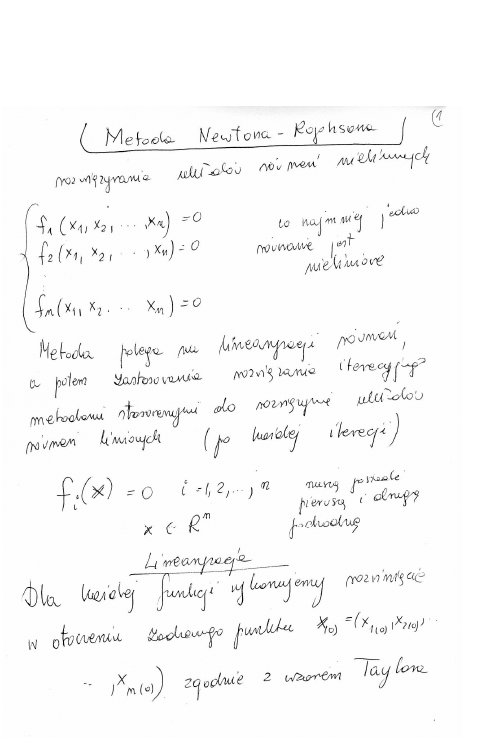 1
Metoda Newtona - Raphsona
rozwiązywania układów równań nieliniowych
f₁ (x₁, x₂, ..., xₙ) = 0 co najmniej jedno
f₂ (x₁, x₂, ..., xₙ) = 0 równanie jest
nieliniowe
fₙ (x₁, x₂ ... xₙ) = 0
Metoda polega na linearyzacji równań,
a potem zastosowania rozwiązania iteracyjnego
metodami stosowanymi do układów
równań liniowych (po każdej iteracji)
fᵢ(x) = 0 i = 1, 2, ..., n muszą posiadać
pierwszą i drugą
x ∈ Rⁿ pochodną
Linearyzacja
Dla każdej funkcji wykonujemy rozwinięcie
w otoczeniu zadanego punktu x₍₀₎ = (x₁₍₀₎, x₂₍₀₎, ..
.. , xₙ₍₀₎) zgodnie z wzorem Taylora